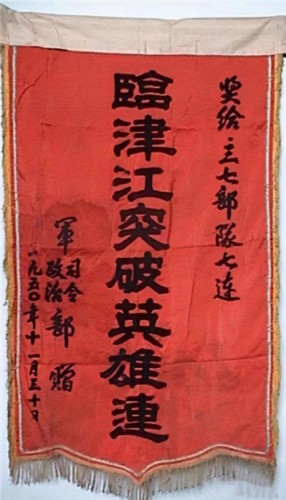 奖给一三七部隊七连
臨津江突破英雄連
軍司令政治部贈
一九五〇年十一月三十日